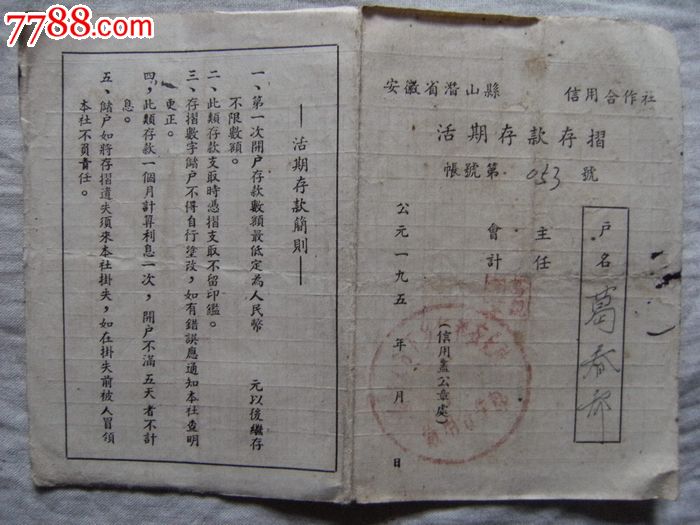 7788.com
安徽省潛山縣 信用合作社
活期存款存摺
帳號第 053 號
戶名 葛
主任
會計
(信用蓋公章處)
公元一九五 年 月 日
—活期存款簡則—
一、第一次開户存款數額最低定為人民幣 元以後繼存
不限數額。
二、此類存款支取時憑摺支取不留印鑑。
三、存摺數字儲户不得自行塗改，如有錯誤應通知本社查明
更正。
四，此類存款一個月計算利息一次，開户不滿五天者不計
息。
五、儲户如將存摺遺失須來本社掛失，如在掛失前被人冒領
本社不負責任。